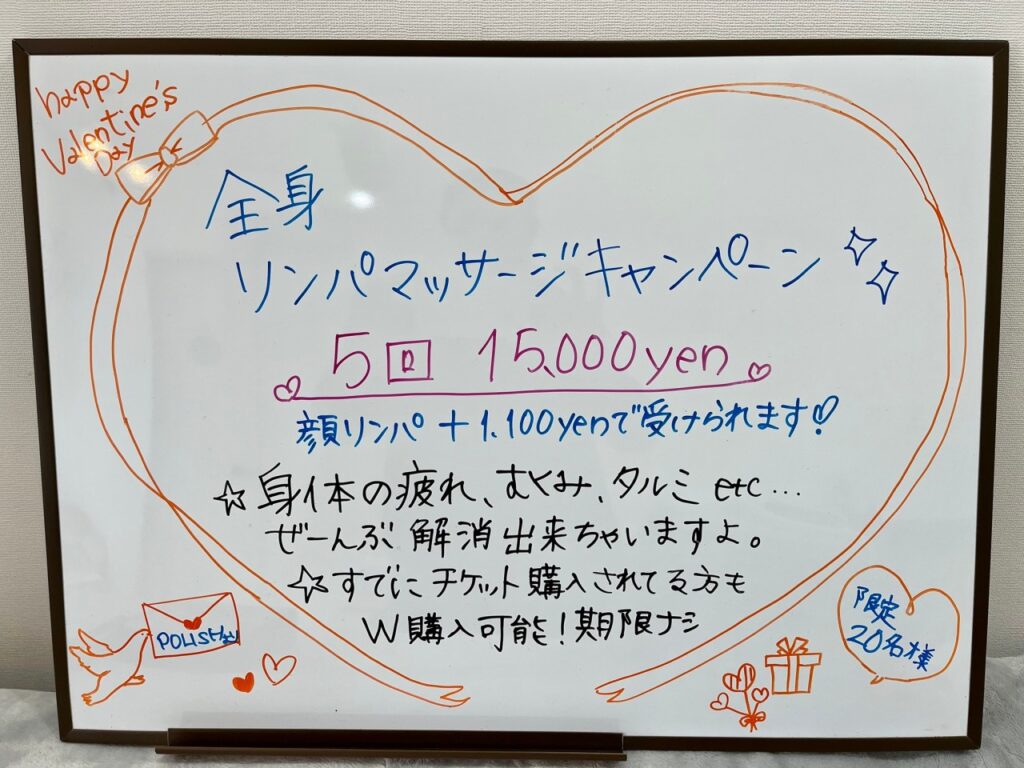 happy
Valentine's
Day
全身
リンパマッサージキャンペーン
5回 15,000yen
顔リンパ+1,100yenで受けられます♡
☆身体の疲れ、むくみ、タルミ etc...
ぜーんぶ解消出来ちゃいますよ。
☆すでにチケット購入されてる方も
W購入可能!期限ナシ
限定
20名様